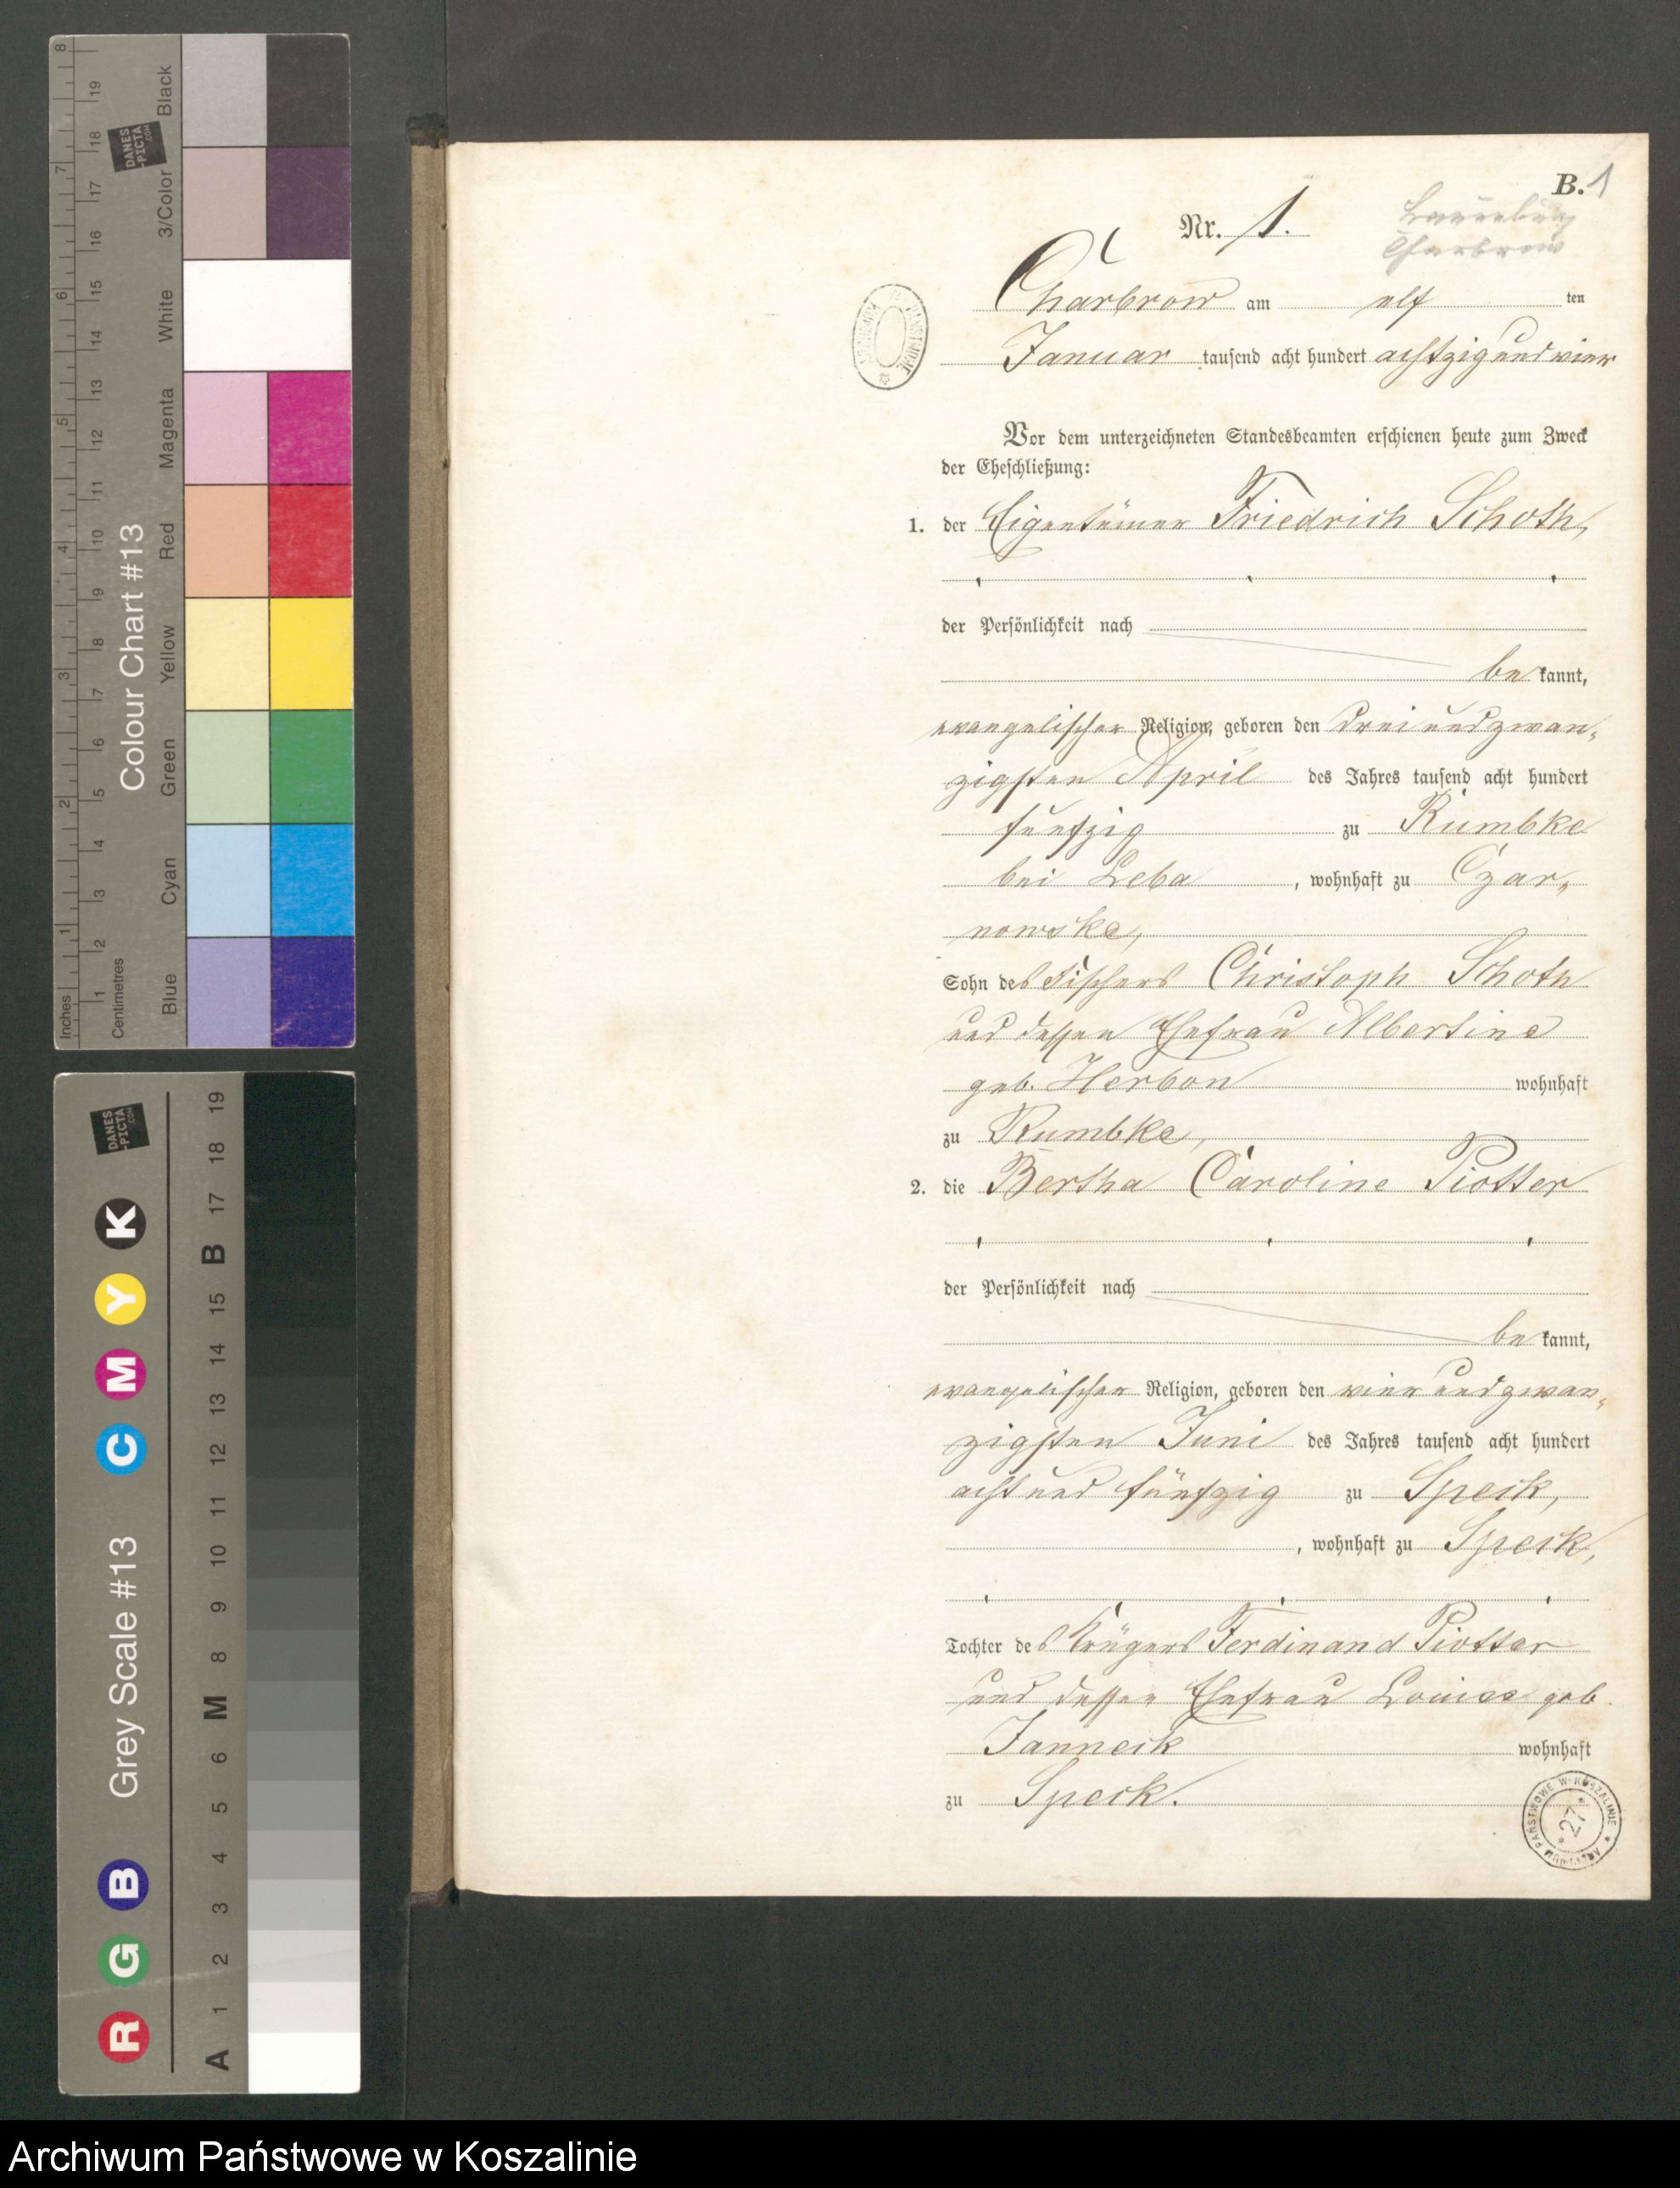 B. 1
Lauenburg
Charbrow
Nr. 1.
Charbrow am elf ten
Januar tausend acht hundert achtzig und vier
Vor dem unterzeichneten Standesbeamten erschienen heute zum Zweck
der Eheschließung:
1. der Eigentümer Friedrich Schoth,
der Persönlichkeit nach
be kannt,
evangelischer Religion, geboren den drei und zwan-
zigsten April des Jahres tausend acht hundert
fünfzig zu Rumbke
bei Leba, wohnhaft zu Czar-
nowske,
Sohn des Fischers Christoph Schoth
und dessen Ehefrau Albertine
geb. Herbon wohnhaft
zu Rumbke,
2. die Bertha Caroline Piotter
der Persönlichkeit nach
be kannt,
evangelischer Religion, geboren den vier und zwan-
zigsten Juni des Jahres tausend acht hundert
acht und fünfzig zu Speck,
, wohnhaft zu Speck,
Tochter des Krügers Ferdinand Piotter
und dessen Ehefrau Louise geb.
Janneck wohnhaft
zu Speck.
ARCHIWUM PAŃSTWOWE W KOSZALINIE
27
Colour Chart #13
Inches
Centimetres
Blue Cyan Green Yellow Red Magenta White 3/Color Black
1 2 3 4 5 6 7 8
1 2 3 4 5 6 7 8 9 10 11 12 13 14 15 16 17 18 19
DANES
-PICTA
.COM
Grey Scale #13
R G B C M Y K
A 1 2 3 4 5 6 M 8 9 10 11 12 13 14 15 B 17 18 19
DANES
-PICTA
.COM
Archiwum Państwowe w Koszalinie